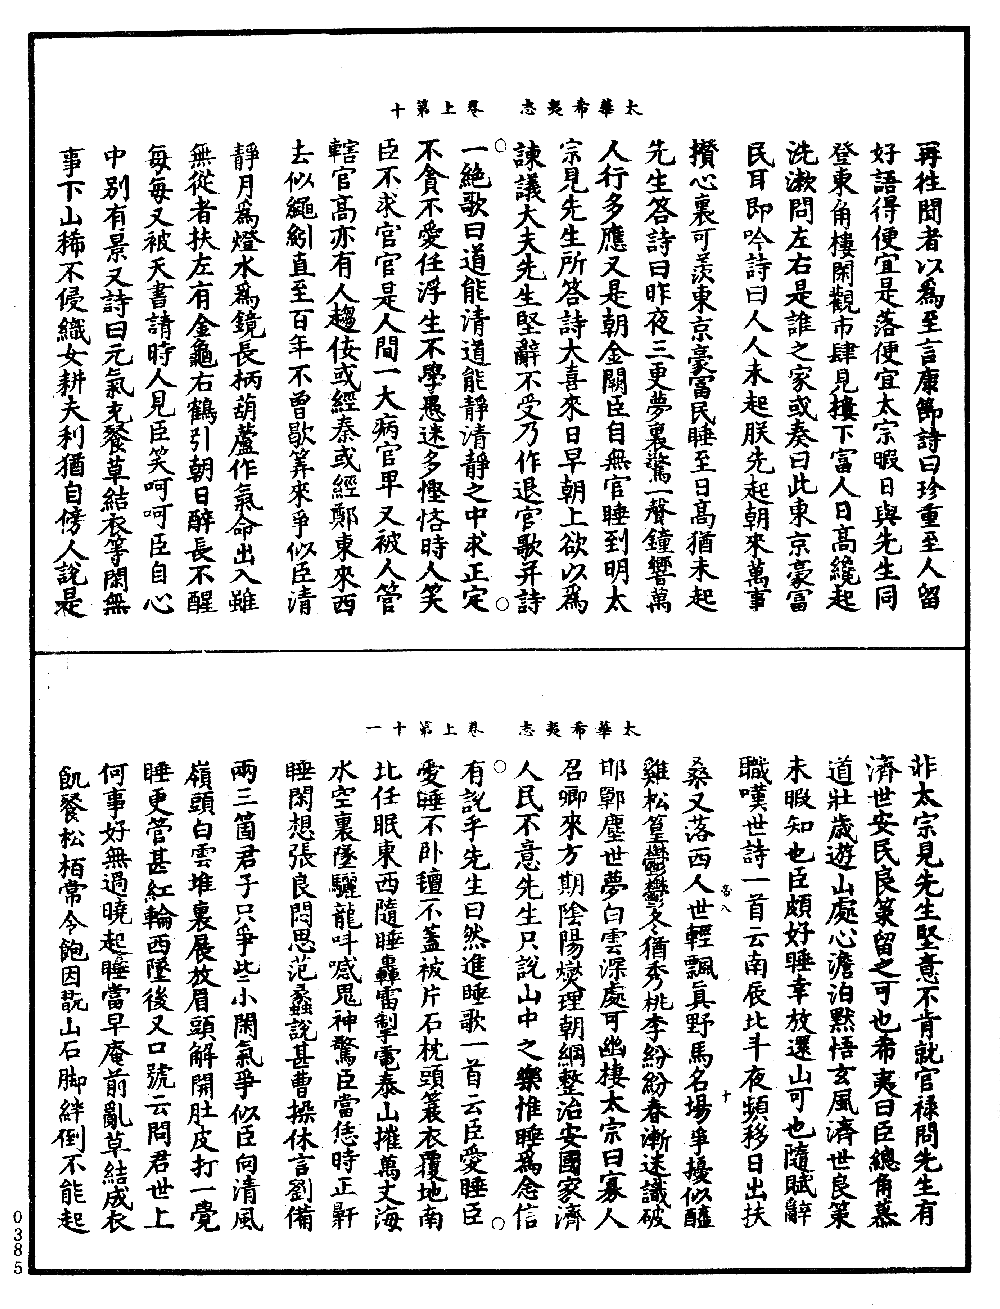 太華希夷志　卷上第十
再往聞者以為至言康節詩曰珍重至人留
好語得便宜是落便宜太宗暇日與先生同
登東角樓閑觀市肆見樓下富人日高纔起
洗漱問左右是誰之家或奏曰此東京豪富
民耳即吟詩曰人人未起朕先起朝來萬事
攢心裏可羨東京豪富民睡至日高猶未起
先生答詩曰昨夜三更夢裏驚一聲鐘響萬
人行多應又是朝金闕臣自無官睡到明太
宗見先生所答詩大喜來日早朝上欲以為
諫議大夫先生堅辭不受乃作退官歌并詩
一絕歌曰道能清道能靜清靜之中求正定
不貪不愛任浮生不學愚迷多慳恡時人笑
臣不求官官是人間一大病官卑又被人管
轄官高亦有人趨佞或經秦或經鄭東來西
去似繩紖直至百年不曾歇筭來爭似臣清
靜月為燈水為鏡長柄葫蘆作氣命出入雖
無從者扶左有金龜右鶴引朝日醉長不醒
每每又被天書請時人見臣笑呵呵臣自心
中別有景又詩曰元氣充餐草結衣等閑無
事下山稀不侵織女耕夫利猶自傍人說是
太華希夷志　卷上第十一
非太宗見先生堅意不肯就官祿問先生有
濟世安民良策留之可也希夷曰臣總角慕
道壯歲遊山處心澹泊默悟玄風濟世良策
未暇知也臣頗好睡幸放還山可也隨賦辭
職嘆世詩一首云南辰北斗夜頻移日出扶
桑又落西人世輕飄真野馬名場爭擾似醯
雞松篁鬱鬱冬猶秀桃李紛紛春漸迷識破
邯鄲塵世夢白雲深處可幽棲太宗曰寡人
召卿來方期陰陽燮理朝綱整治安國家濟
人民不意先生只說山中之樂惟睡為念信
有說乎先生曰然進睡歌一首云臣愛睡臣
愛睡不臥氈不蓋被片石枕頭簑衣覆地南
北任眠東西隨睡轟雷掣電泰山摧萬丈海
水空裏墜驪龍呌喊鬼神驚臣當恁時正鼾
睡閑想張良悶思范蠡說甚曹操休言劉備
兩三箇君子只爭些小閑氣爭似臣向清風
嶺頭白雲堆裏展放眉頭解開肚皮打一覺
睡更管甚紅輪西墜後又口號云問君世上
何事好無過曉起睡當早庵前亂草結成衣
飢餐松栢常令飽因翫山石脚絆倒不能起
0385